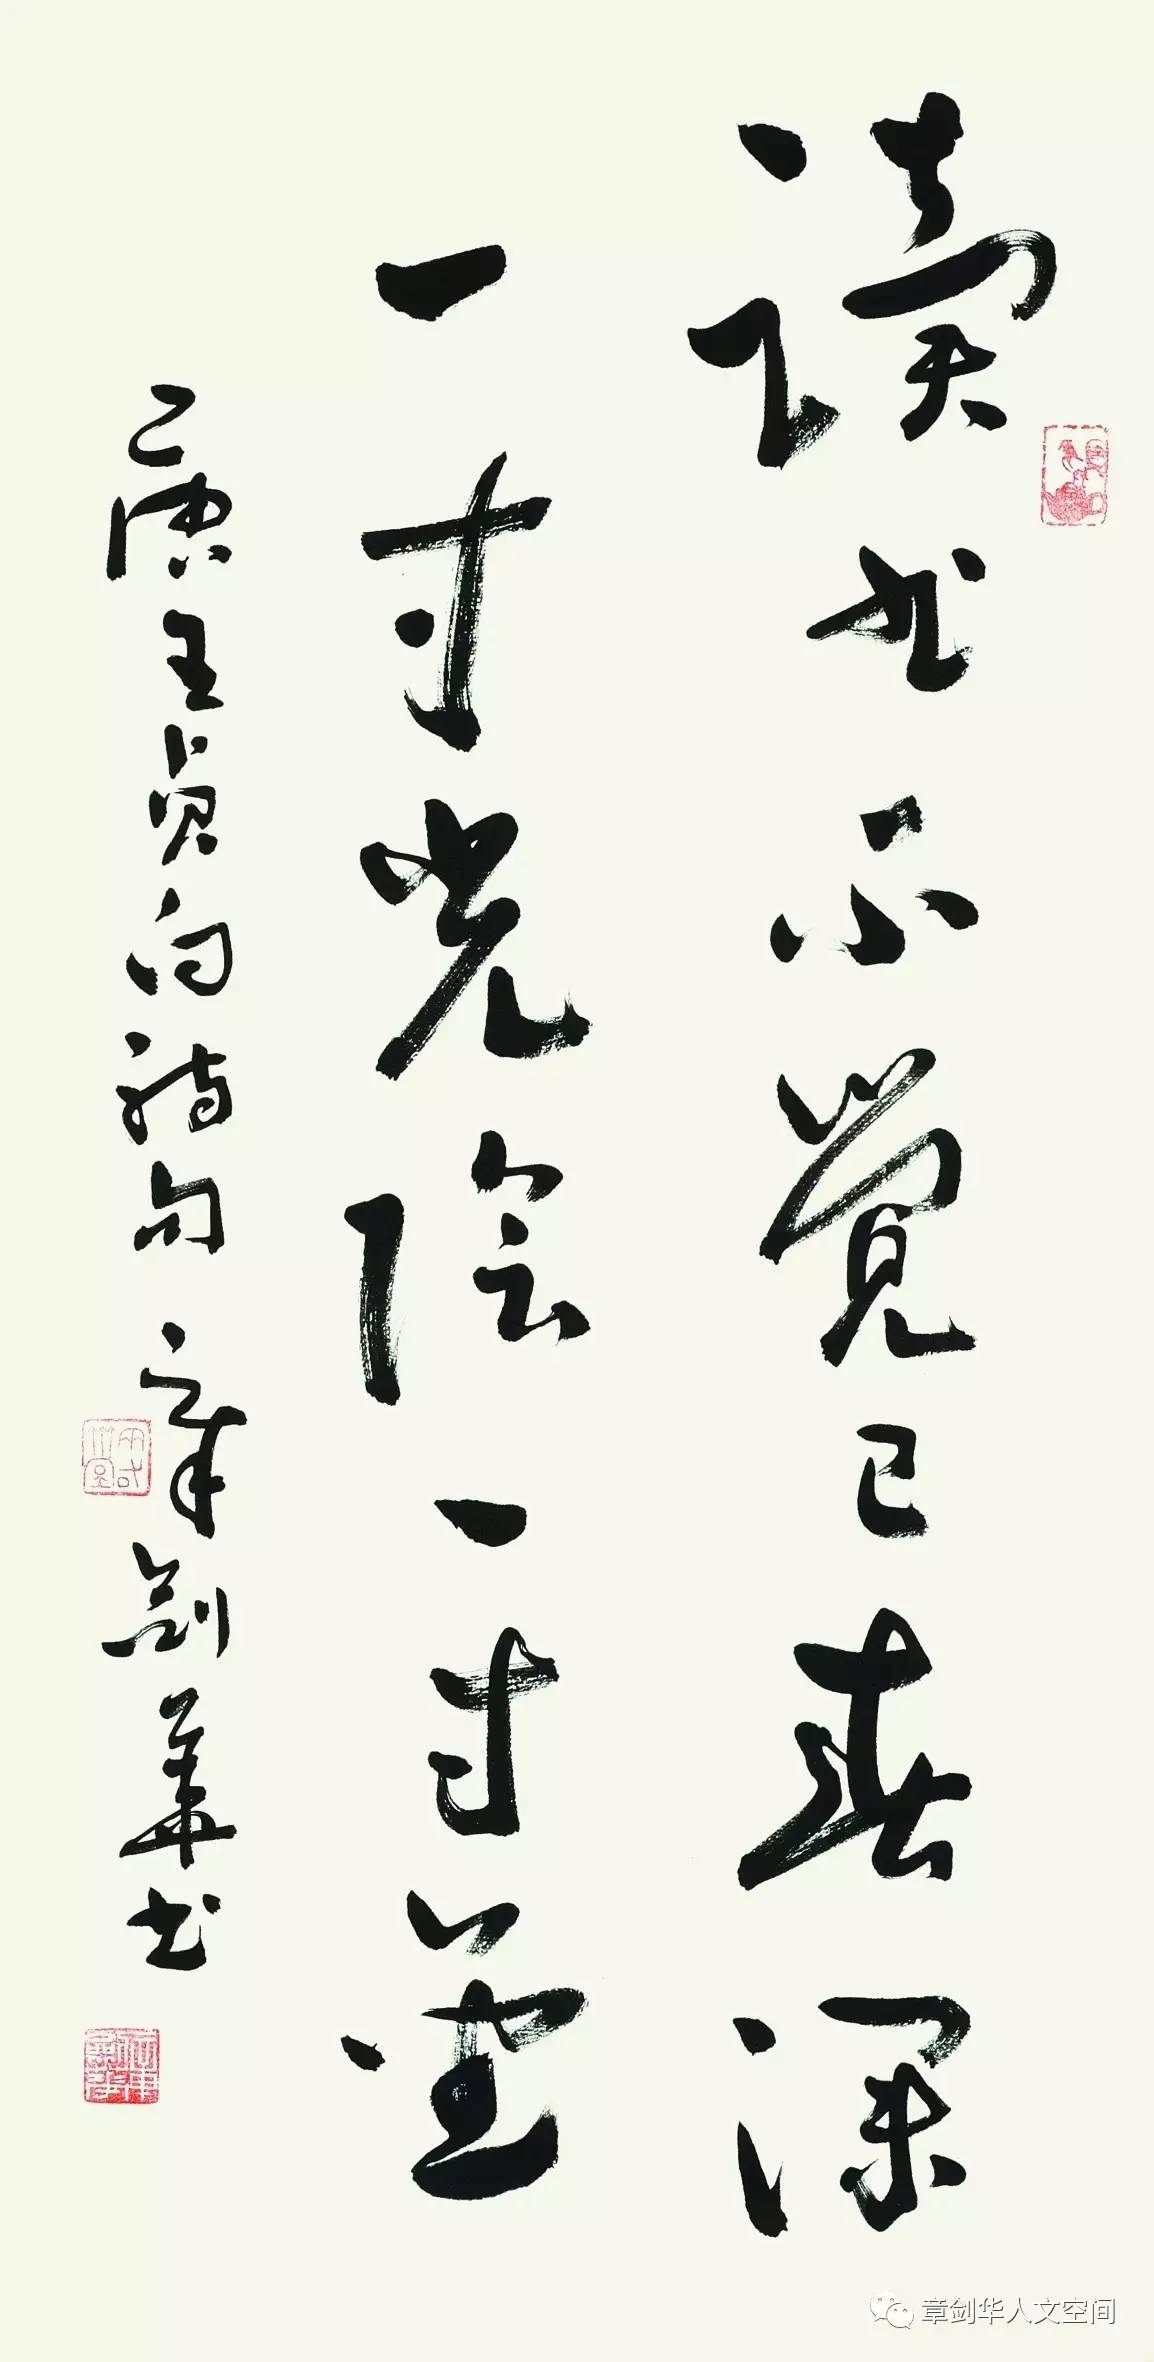 读书不觉已春深
一寸光阴一寸金
唐王贞白诗句 章剑华书
章剑华人文空间